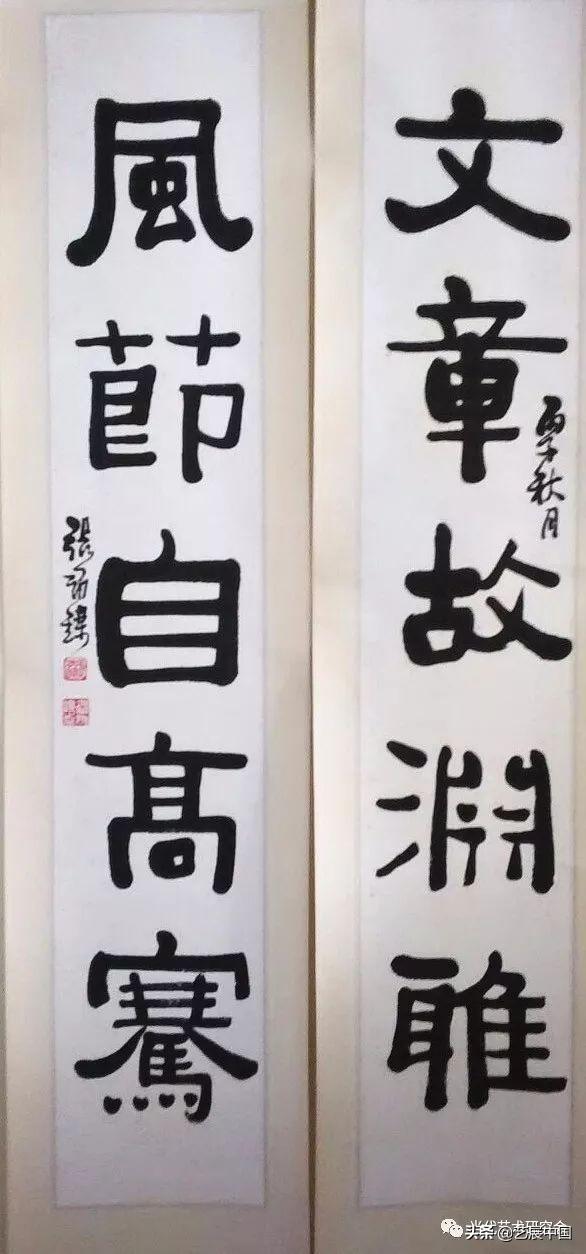 文章故淵雅
丙子秋月
風節自高騫
張
头条 @艺辰中国